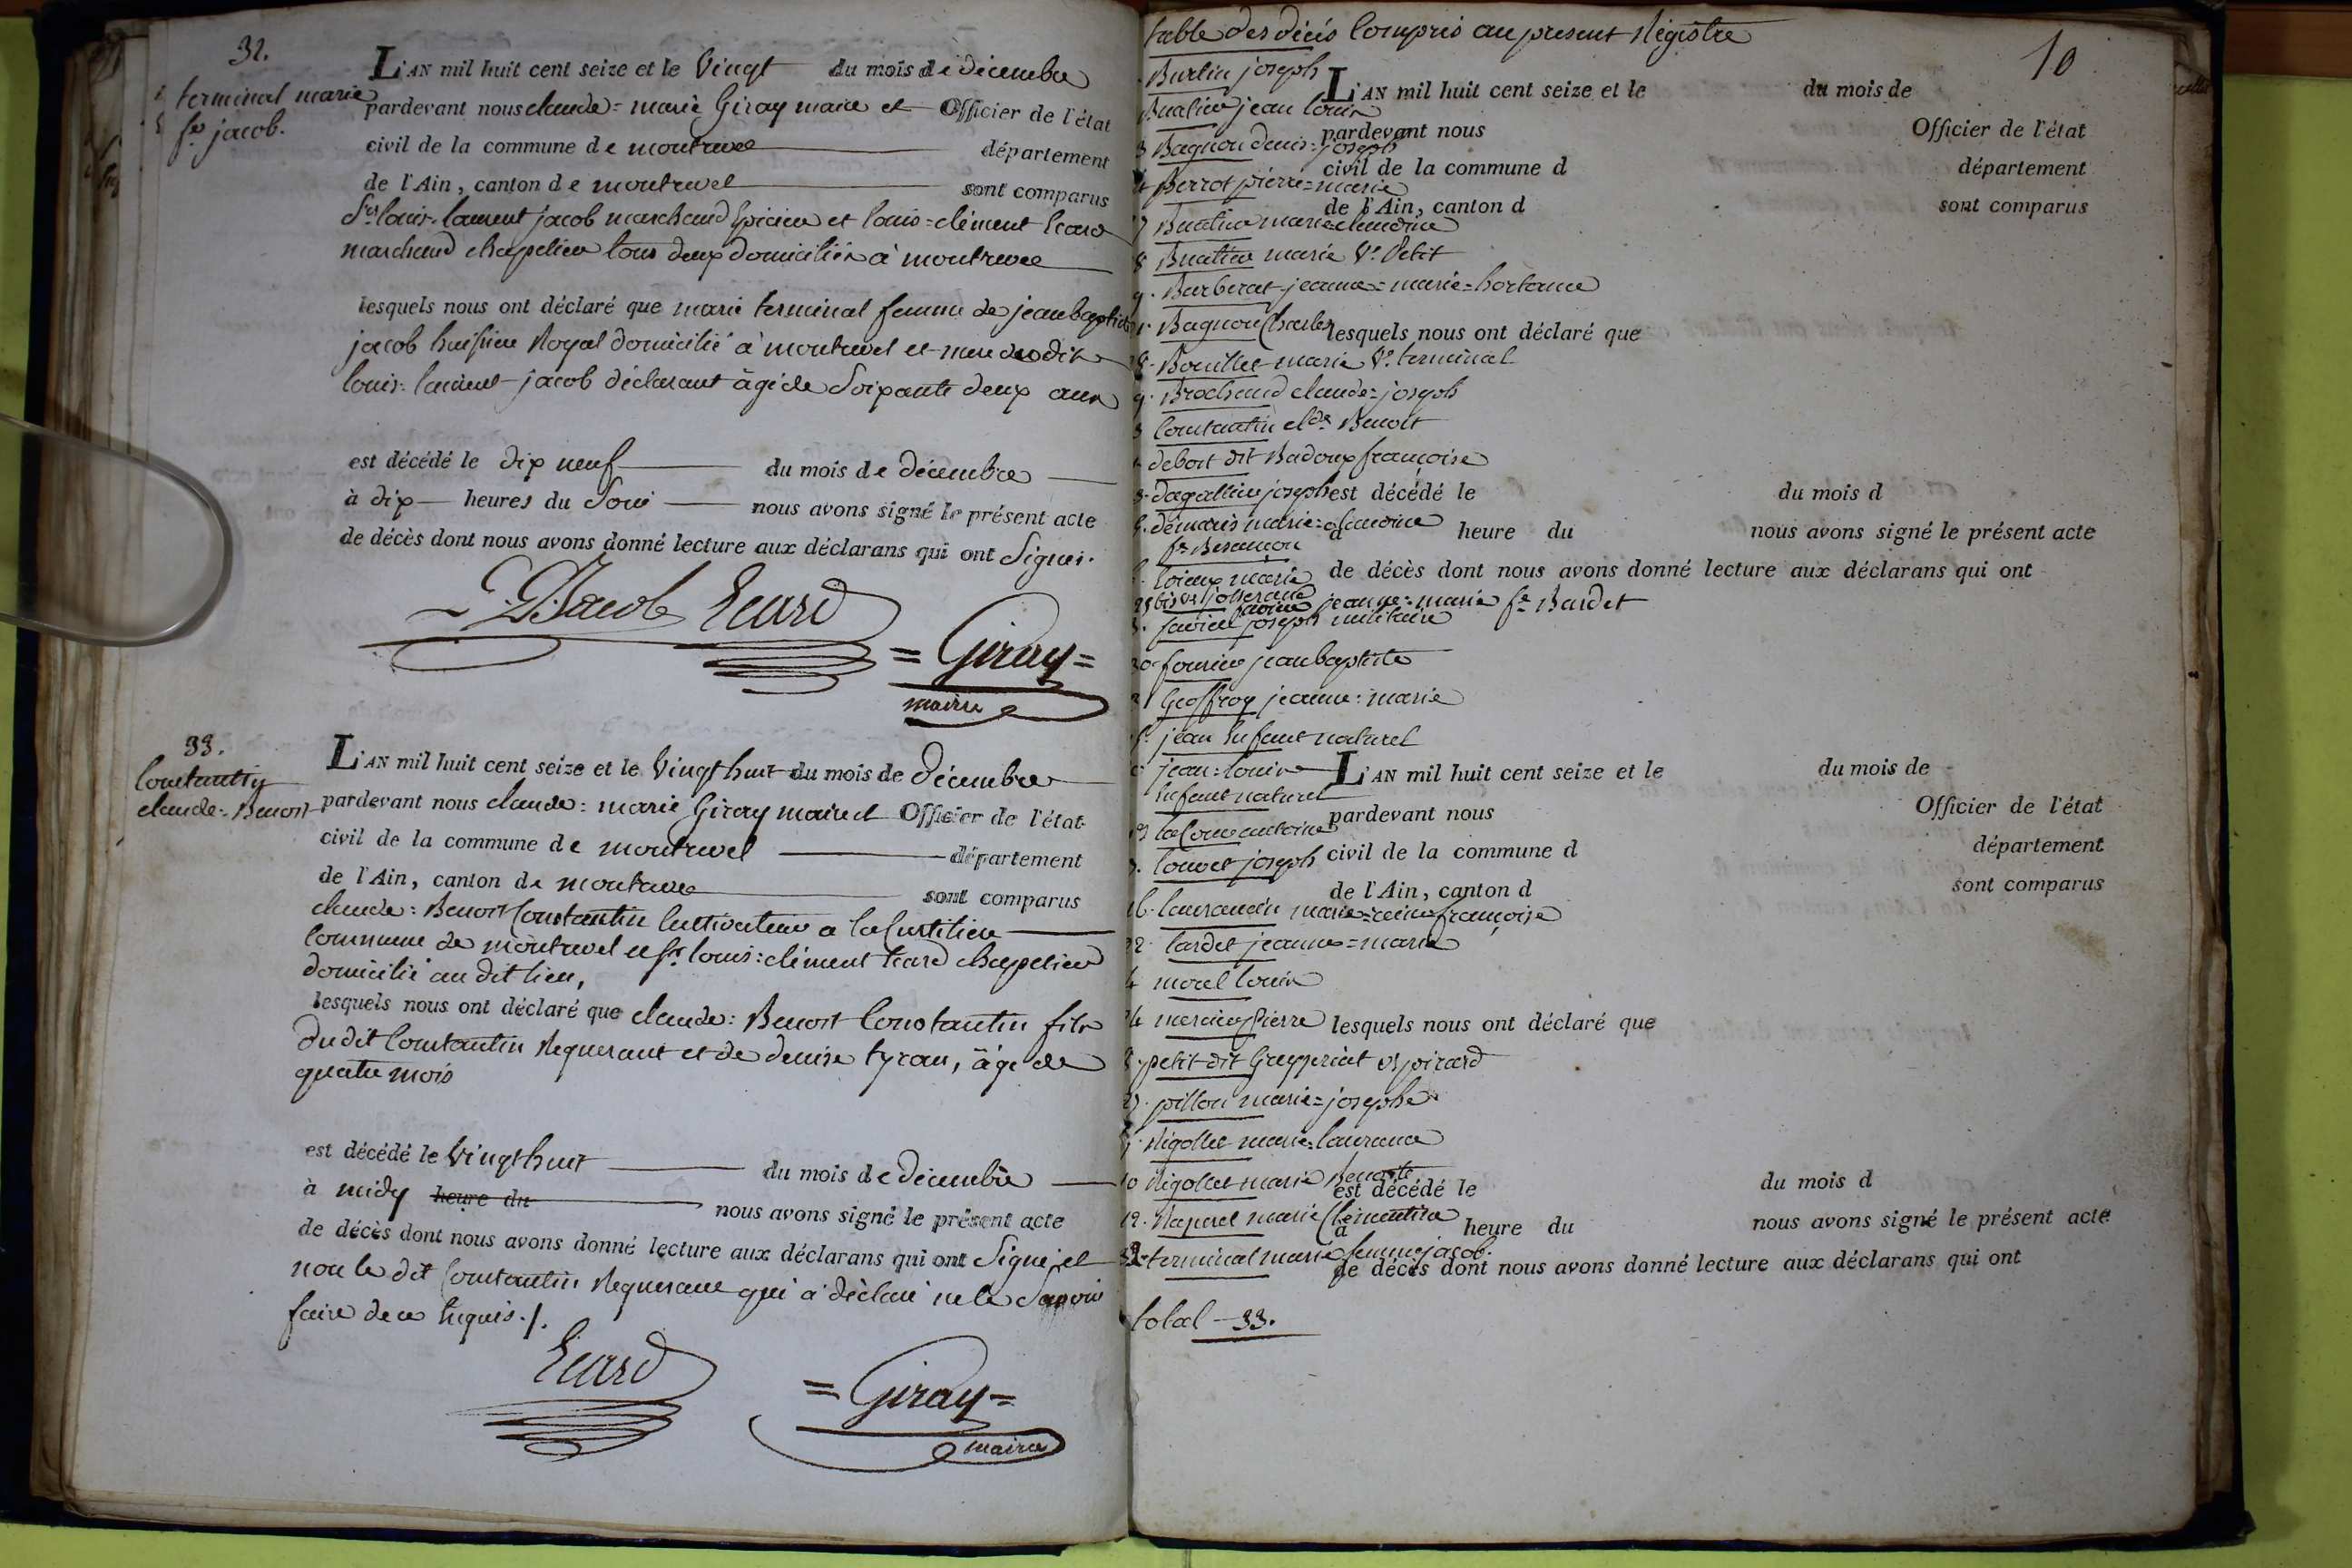 32.
terminal marie
fe jacob.
L'AN mil huit cent seize et le Vingt du mois de décembre
pardevant nous claude = marie Giray maire et Officier de l'état
civil de la commune de montrevel département
de l'Ain, canton de montrevel sont comparus
Srs louis-laurent jacob marchand Epicier et louis = clément Ecard
marchand chapelier tous deux domiciliés à montrevel
lesquels nous ont déclaré que marie terminal femme de jean baptiste
jacob huissier Royal domicilié à montrevel et mere dudit
louis = laurent jacob déclarant âgée de Soixante deux ans
est décédé le dix neuf du mois de décembre
à dix heures du Soir nous avons signé le présent acte
de décès dont nous avons donné lecture aux déclarans qui ont Signés.
Jacob Ecard
= Giray =
maire
33.
Constantin
claude = Benoit
L'AN mil huit cent seize et le Vingt huit du mois de décembre
pardevant nous claude = marie Giray maire et Officier de l'état
civil de la commune de montrevel département
de l'Ain, canton de montrevel sont comparus
claude = Benoit Constantin Cultivateur a la Curtiliere
Commune de montrevel et Sr louis = clément Ecard chapelier
domicilié au dit lieu,
lesquels nous ont déclaré que claude = Benoit Constantin fils
du dit Constantin Requerant et de denise tyran, âgé de
quatre mois
est décédé le Vingt huit du mois de décembre
à midy heure du nous avons signé le présent acte
de décès dont nous avons donné lecture aux déclarans qui ont Signé, et
non le dit Constantin Requerant qui a déclaré ne le Savoir
faire de ce Enquis ./.
Ecard
= Giray =
maire
table des décés Compris au present Régistre
10
Burtin joseph
Buatier jean louis
3 Bagnon denis = joseph
4 Perrot pierre = marie
7 Buatier marie = claudine
8 Buatier marie Ve Petit
9. Barberat jeanne = marie = hortance
Bagnon Charles
18. Bouillet marie Ve terminal
Brochand claude = joseph
3 Constantin cl.de Benoit
debost dit Badoux françoise
dagallier joseph
démaris marie = claudine
fe Besançon
marie
jeanne = marie fe Bardet
favier joseph militaire
20 fournier jean baptiste
21 Geoffroy jeanne = marie
jean Enfant naturel
jean = louis
Enfant naturel
antoine
louvet joseph
16. laurancin marie = reine françoise
22. lardet jeanne = marie
4 morel louis
24 mercier Pierre
petit dit Grupperiat
27. pillon marie = josephe
Rigollet marie = laurance
10 Rigollet marie Benoite
12. Raparel marie Clémentine
32. terminal marie femme jacob.
total — 33.
L'AN mil huit cent seize et le du mois de
pardevant nous Officier de l'état
civil de la commune d département
de l'Ain, canton d sont comparus
lesquels nous ont déclaré que
est décédé le du mois d
à heure du nous avons signé le présent acte
de décès dont nous avons donné lecture aux déclarans qui ont
L'AN mil huit cent seize et le du mois de
pardevant nous Officier de l'état
civil de la commune d département
de l'Ain, canton d sont comparus
lesquels nous ont déclaré que
est décédé le du mois d
à heure du nous avons signé le présent acte
de décès dont nous avons donné lecture aux déclarans qui ont